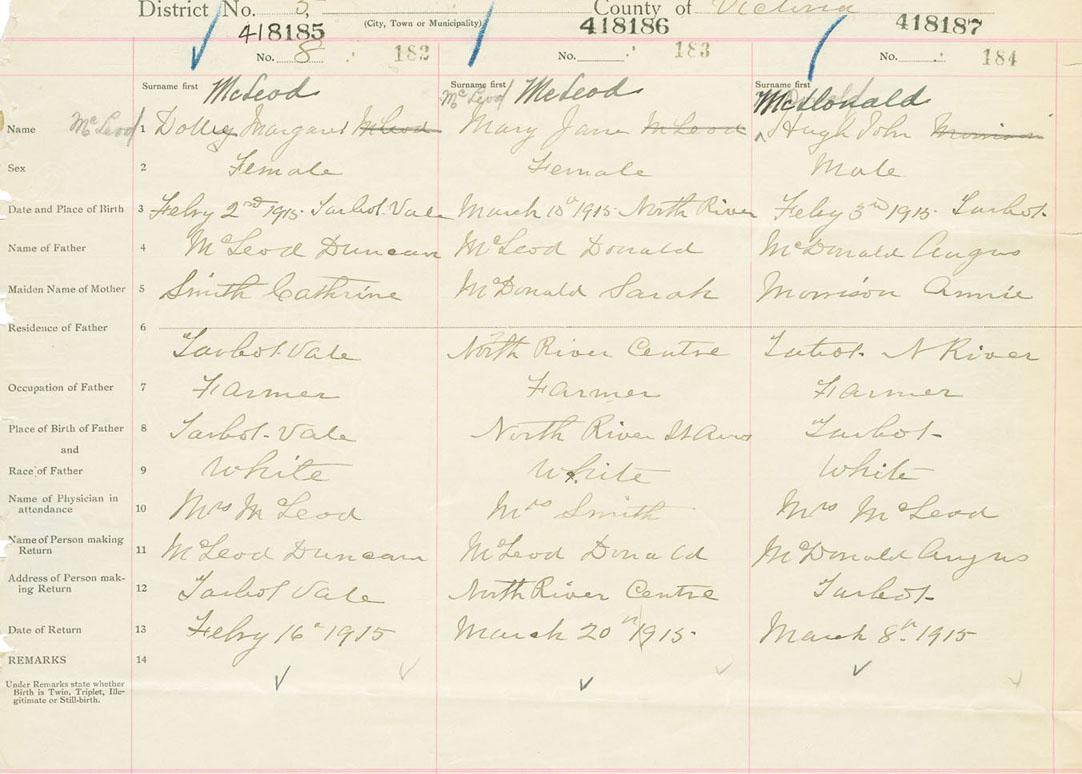 District No. 5 County of Victoria
(City, Town or Municipality)
418185 418186 418187
No. 8 182 No. 183 No. 184
Surname first McLeod Surname first McLeod Surname first McDonald
McLeod McLeod
Name 1 Dolley Margaret McLeod Mary Jane McLeod Hugh John Morrison
Sex 2 Female Female Male
Date and Place of Birth 3 Febry 2nd 1915. Tarbot. Vale March 10th 1915. North River Feby 5th 1915. Tarbot.
Name of Father 4 McLeod Duncan McLeod Donald McDonald Angus
Maiden Name of Mother 5 Smith Cathrine McDonald Sarah Morrison Annie
Residence of Father 6
Tarbot. Vale North River Centre Tarbot. N River
Occupation of Father 7 Farmer Farmer Farmer
Place of Birth of Father 8 Tarbot. Vale North River St Anns Tarbot.
and
Race of Father 9 White White White
Name of Physician in
attendance 10 Mrs McLeod Mrs Smith Mrs McLeod
Name of Person making
Return 11 McLeod Duncan McLeod Donald McDonald Angus
Address of Person mak-
ing Return 12 Tarbot Vale North River Centre Tarbot.
Date of Return 13 Febry 16th 1915 March 20th 1915. March 8th. 1915
REMARKS 14
Under Remarks state whether
Birth is Twin, Triplet, Ille-
gitimate or Still-birth.